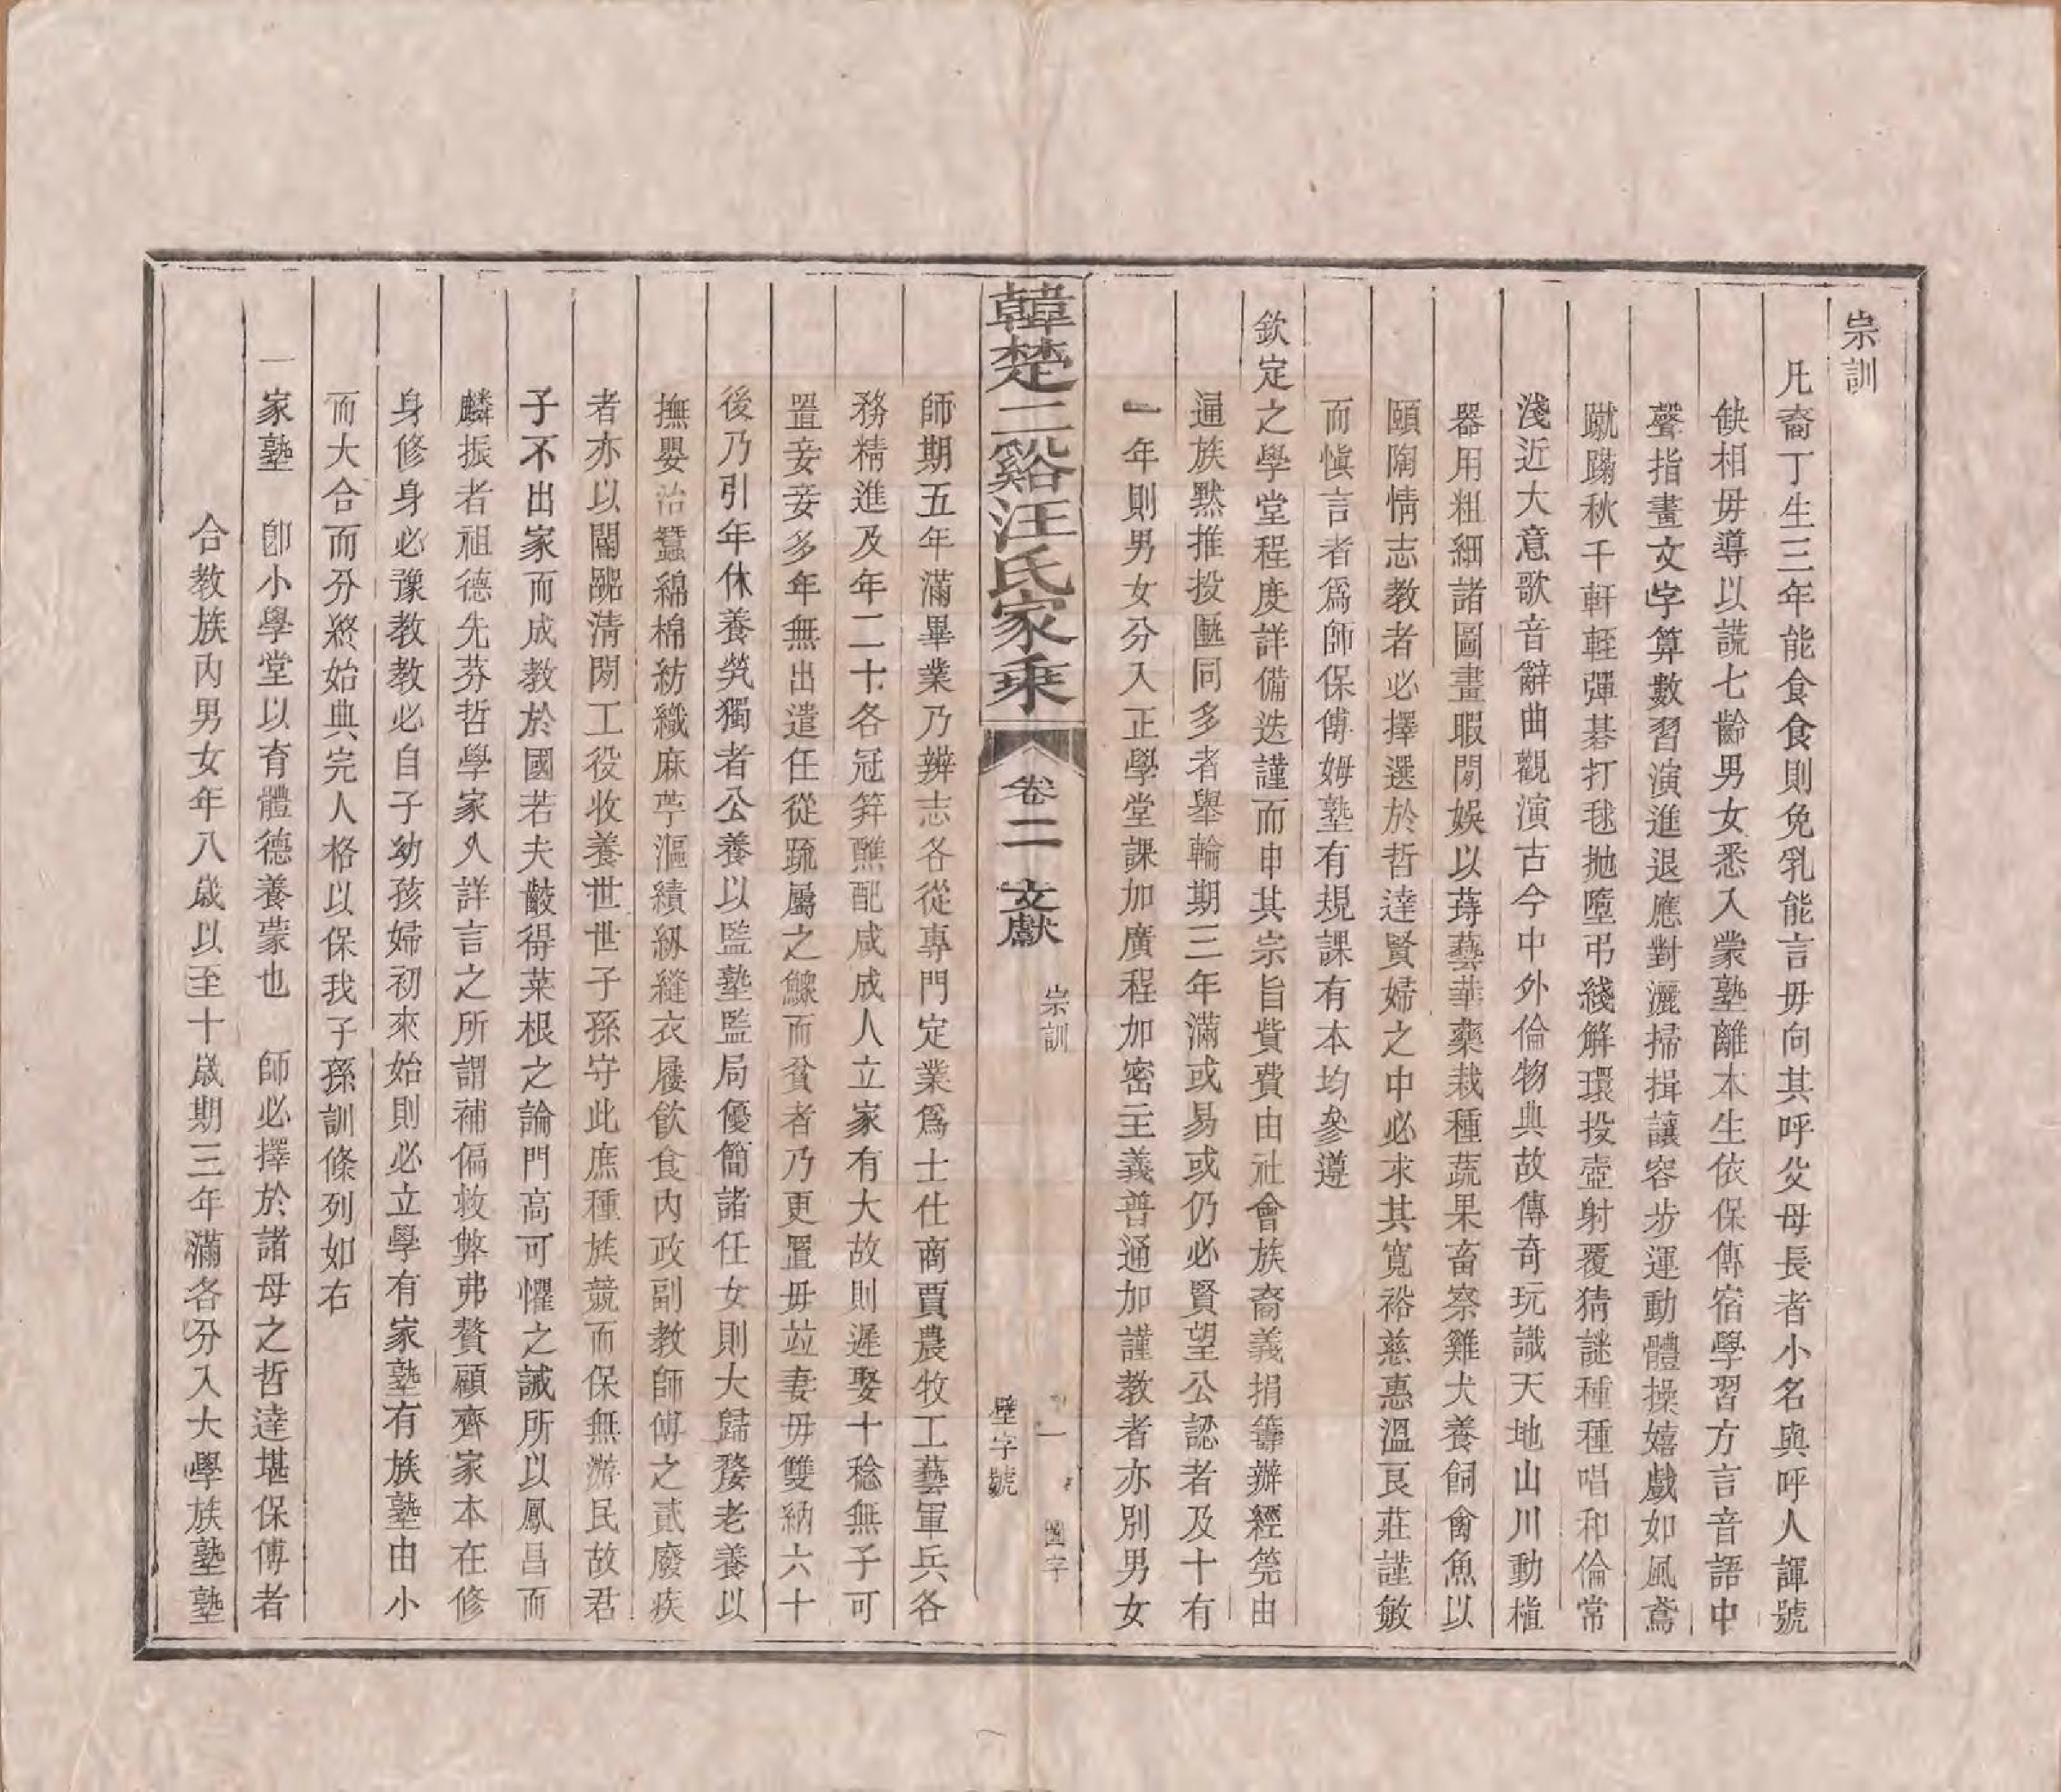 宗訓
凡裔丁生三年能食食則免乳能言毋向其呼父母長者小名與呼人諱號
缺相毋導以謊七齡男女悉入蒙塾離本生依保傅宿學習方言音語中
聲指畫文字算數習演進退應對灑掃揖讓容步運動體操嬉戲如風鳶
蹴蹋秋千軒輊彈棊打毬拋墮弔綫解環投壺射覆猜謎種種唱和倫常
淺近大意歌音辭曲觀演古今中外倫物典故傳奇玩識天地山川動植
器用粗細諸圖畫暇閒娛以蒔藝華藥栽種蔬果畜察雞犬養飼禽魚以
頤陶情志教者必擇選於哲達賢婦之中必求其寬裕慈惠溫良莊謹敏
而愼言者爲師保傅姆塾有規課有本均參遵
欽定之學堂程度詳備迭謹而申其宗旨貲費由社會族裔義捐籌辦經筦由
逼族默推投匭同多者舉輪期三年滿或易或仍必賢望公認者及十有
一年則男女分入正學堂課加廣程加密主義普通加謹教者亦別男女
韓楚二谿汪氏家乘 卷二 文獻 宗訓 一 壁字號
師期五年滿畢業乃辨志各從專門定業爲士仕商賈農牧工藝軍兵各
務精進及年二十各冠筓醮配咸成人立家有大故則遲娶十稔無子可
置妾妾多年無出遣任從疏屬之鰥而貧者乃更置毋竝妻毋雙納六十
後乃引年休養煢獨者公養以監塾監局優簡諸任女則大歸婺老養以
撫嬰治蠶綿棉紡織麻苧漚績紉縫衣屨飮食內政副教師傅之貳廢疾
者亦以閽清閒工役收養世世子孫守此庶種族競而保無游民故君
子不出家而成教於國若夫齩得菜根之論門高可懼之誡所以鳳昌而
麟振者祖德先芬哲學家久詳言之所謂補偏救弊弗贅顧齊家本在修
身修身必豫教教必自子幼孩婦初來始則必立學有家塾有族塾由小
而大合而分終始典完人格以保我子孫訓條列如右
一家塾 卽小學堂以育體德養蒙也 師必擇於諸母之哲達堪保傅者
合教族內男女年八歲以至十歲期三年滿各分入大學族塾塾